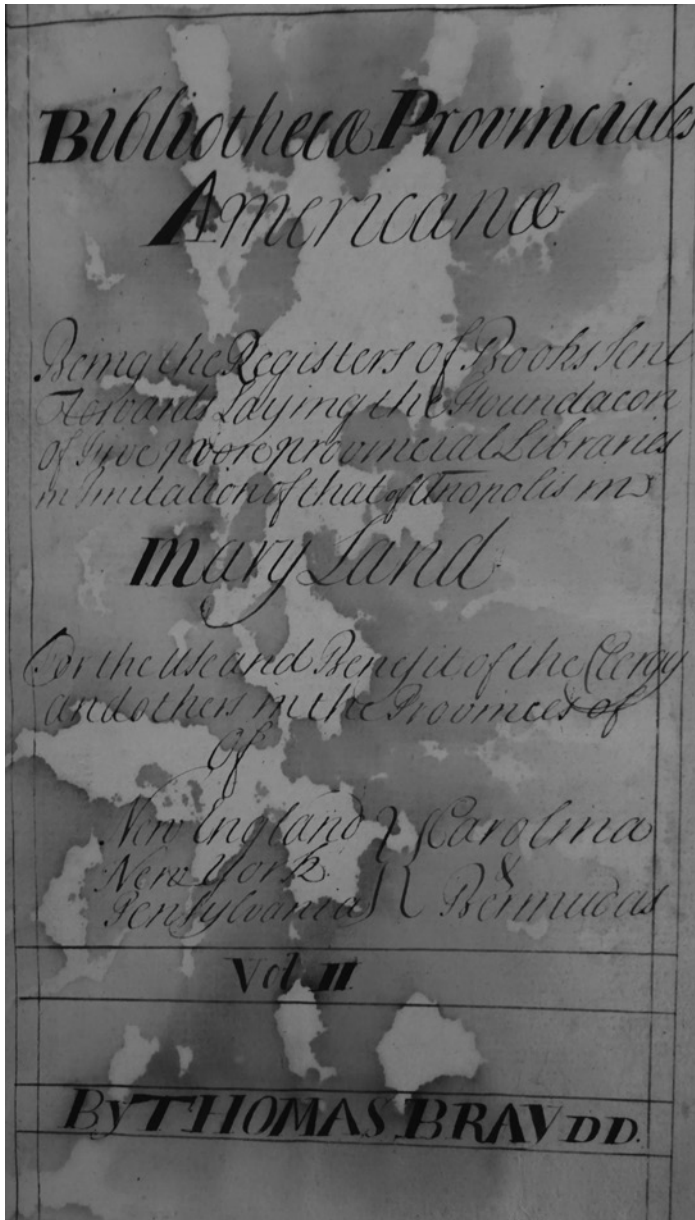 Bibliothecæ Provinciales
Americanæ
Being the Registers of Books Sent
towards Laying the Foundacon
of Five more provincial Libraries
in Imitation of that of Anopolis in
Mary Land
For the Use and Benefit of the Clergy
and others in the Provinces of
Of
New England Carolina
New York &
Pensylvania Bermudas
Vol II
By THOMAS BRAY DD.